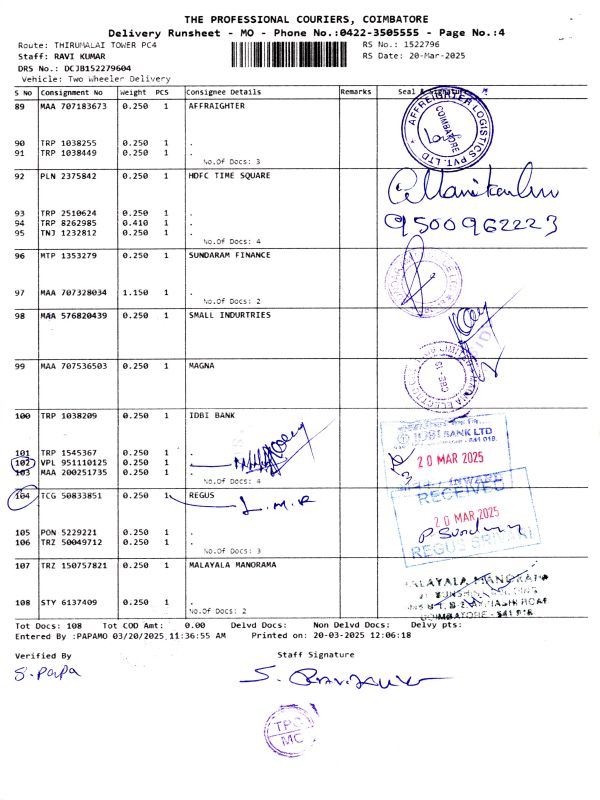 THE PROFESSIONAL COURIERS, COIMBATORE
Delivery Runsheet - MO - Phone No.:0422-3505555 - Page No.:4
Route: THIRUMALAI TOWER PC4 RS No.: 1522796
Staff: RAVI KUMAR RS Date: 20-Mar-2025
DRS No.: DCJB152279604
Vehicle: Two Wheeler Delivery
S No Consignment No Weight PCS Consignee Details Remarks Seal & Signature
89 MAA 707183673 0.250 1 AFFRAIGHTER
AFFREIGHTER LOGISTICS PVT. LTD
COIMBATORE
90 TRP 1038255 0.250 1 .
91 TRP 1038449 0.250 1 .
No.Of Docs: 3
92 PLN 2375842 0.250 1 HDFC TIME SQUARE
93 TRP 2510624 0.250 1 .
9500962223
94 TRP 8262985 0.410 1 .
95 TNJ 1232812 0.250 1 .
No.Of Docs: 4
96 MTP 1353279 0.250 1 SUNDARAM FINANCE
97 MAA 707328034 1.150 1 .
No.Of Docs: 2
98 MAA 576820439 0.250 1 SMALL INDURTRIES
99 MAA 707536503 0.250 1 MAGNA
CBE-18
100 TRP 1038209 0.250 1 IDBI BANK
IDBI BANK LTD
101 TRP 1545367 0.250 1 .
102 VPL 951110125 0.250 1 .
20 MAR 2025
103 MAA 200251735 0.250 1 .
No.Of Docs: 4
INWARD
104 TCG 50833851 0.250 1 REGUS
L.M.R
RECEIVED
20 MAR 2025
105 PON 5229221 0.250 1 .
106 TRZ 50049712 0.250 1 .
No.Of Docs: 3
REGUS SRIVARI
107 TRZ 150757821 0.250 1 MALAYALA MANORAMA
MALAYALA MANORAMA
108 STY 6137409 0.250 1 .
No.Of Docs: 2
COIMBATORE - 641 018
Tot Docs: 108 Tot COD Amt: 0.00 Delvd Docs: Non Delvd Docs: Delvy pts:
Entered By :PAPAMO 03/20/2025 11:36:55 AM Printed on: 20-03-2025 12:06:18
Verified By Staff Signature
S. Papa
TPC
MC